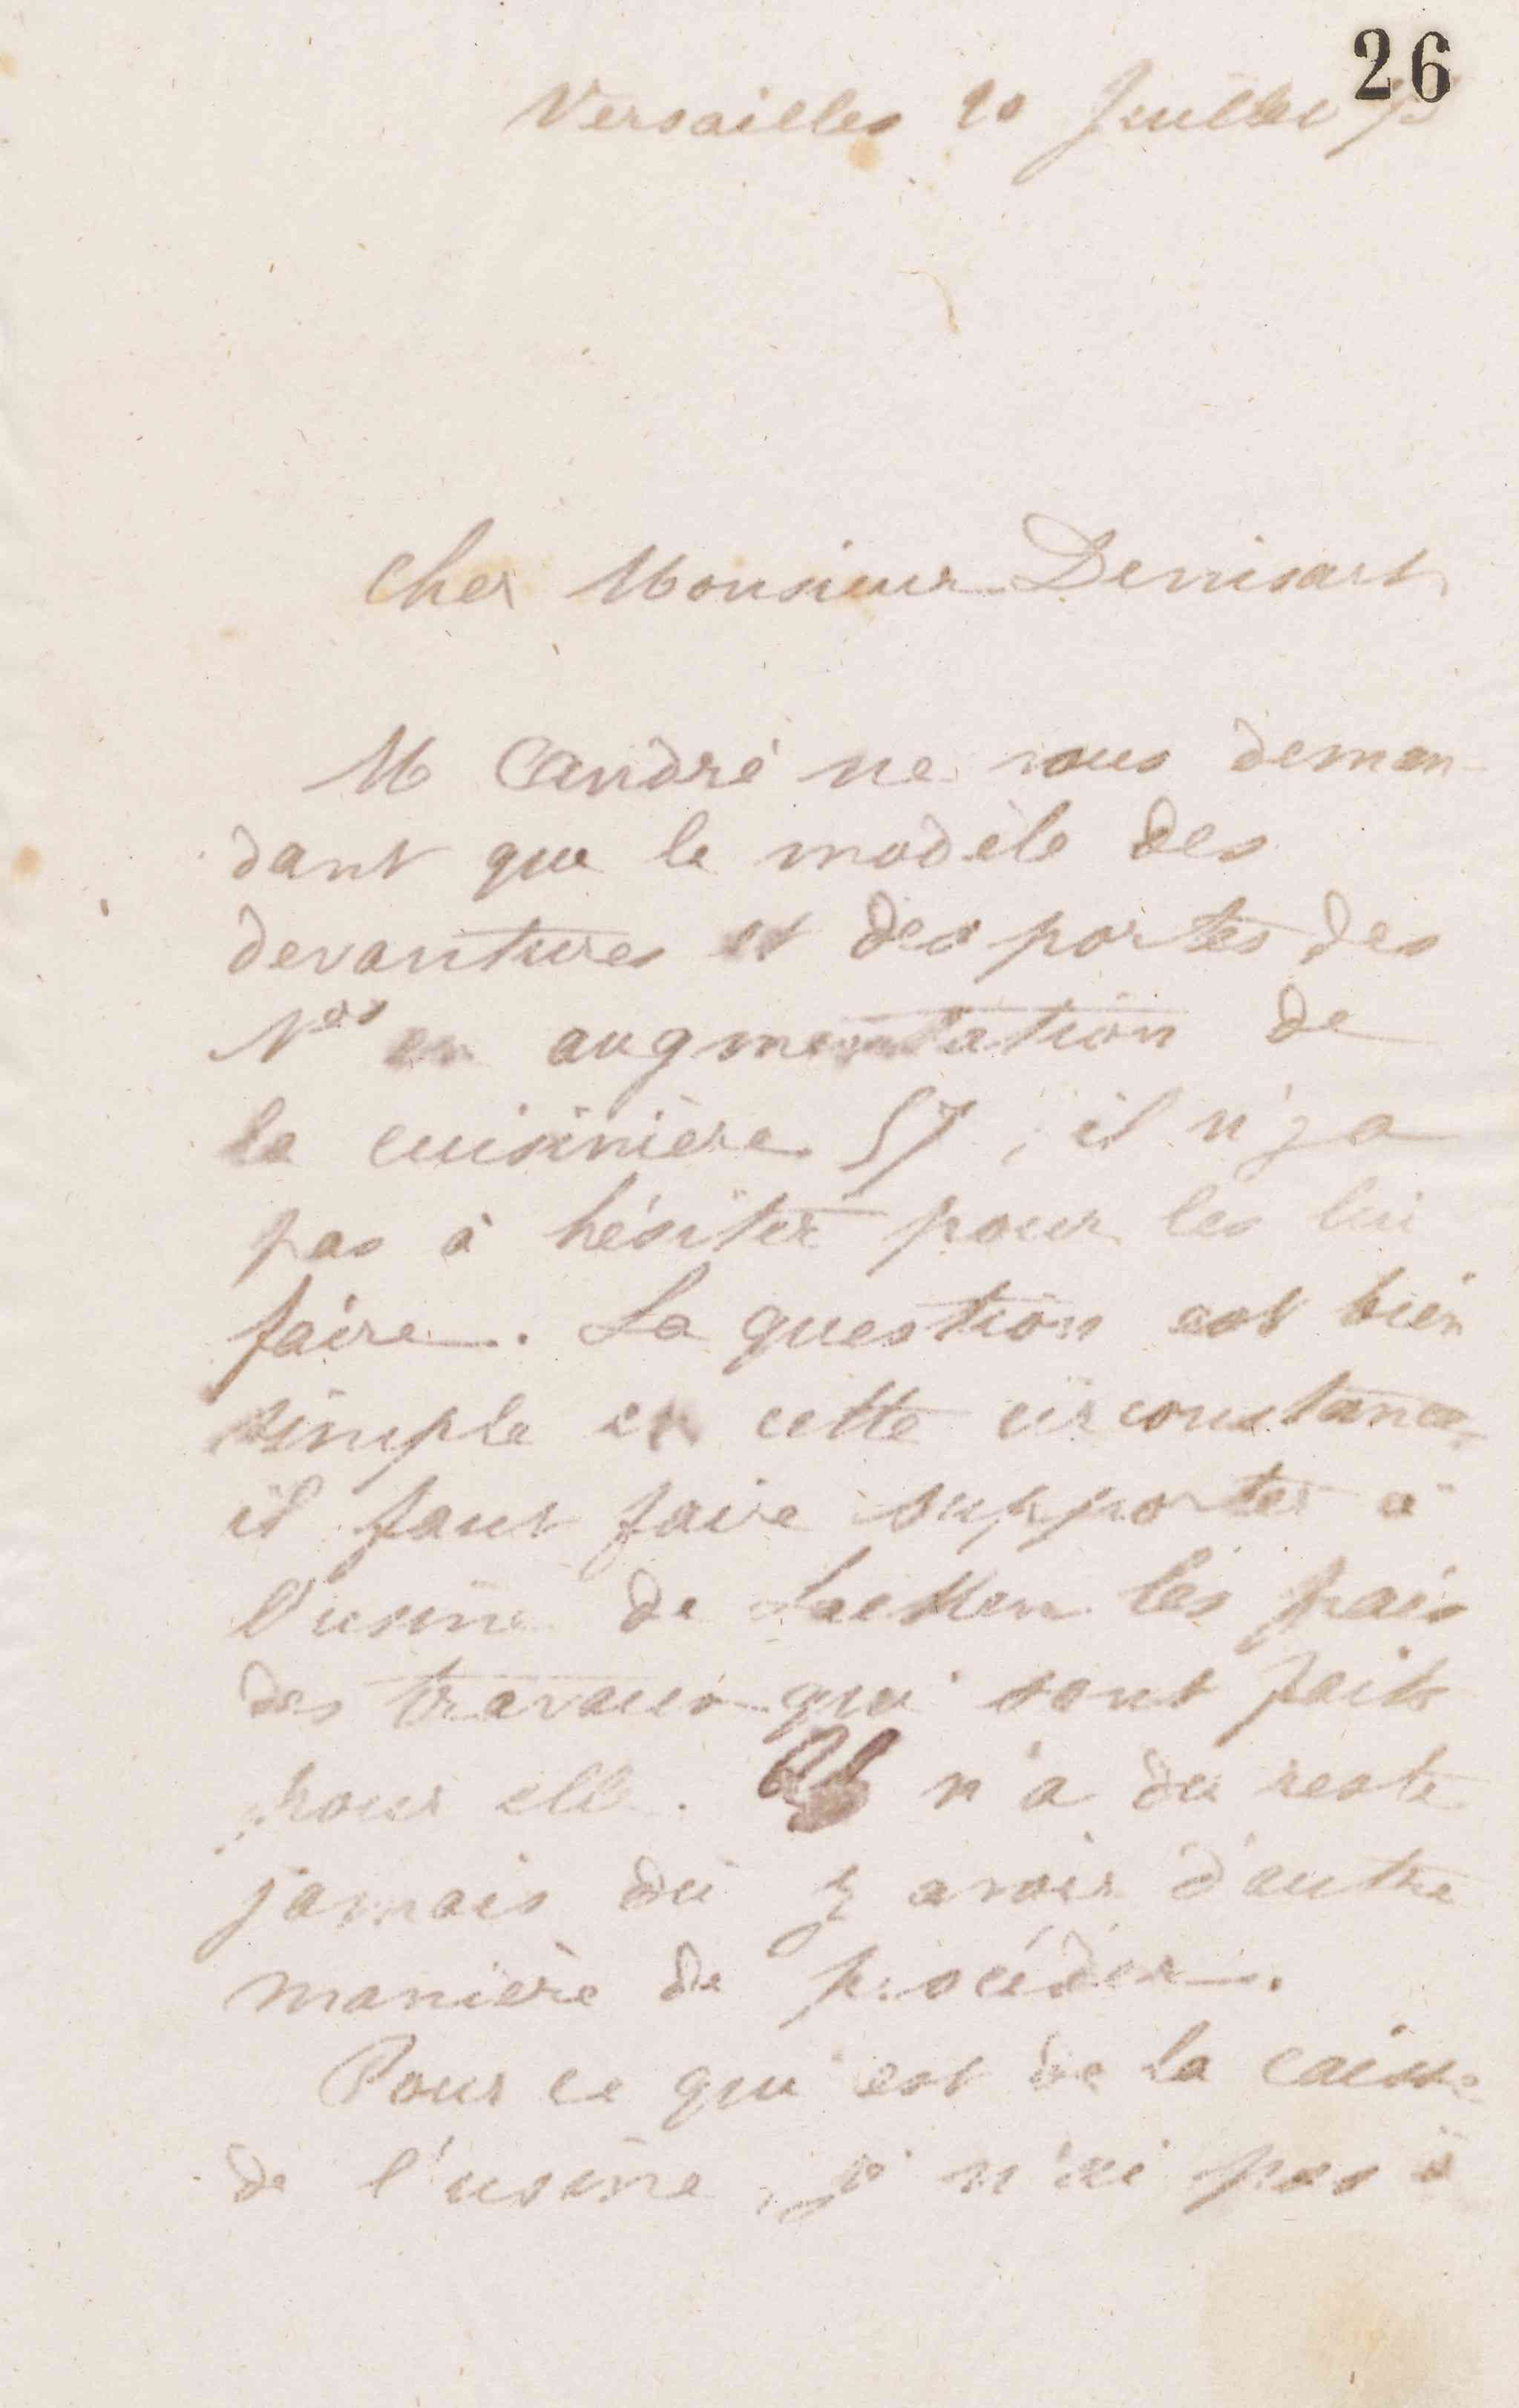 26
Versailles 20 Juillet 73
Cher Monsieur Denisart
M André ne vous deman-
dant que le modèle des
devantures et des portes des
Nos en augmentation de
la cuisinière 57, il n'y a
pas à hésiter pour les lui
faire. La question est bien
simple en cette circonstance,
il faut faire supporter à
l'usine de Laeken les frais
des travaux qui sont faits
pour elle. Il n'a du reste
jamais dû y avoir d'autre
manière de procéder.
Pour ce qui est de la caisse
de l'usine, je n'ai pas à